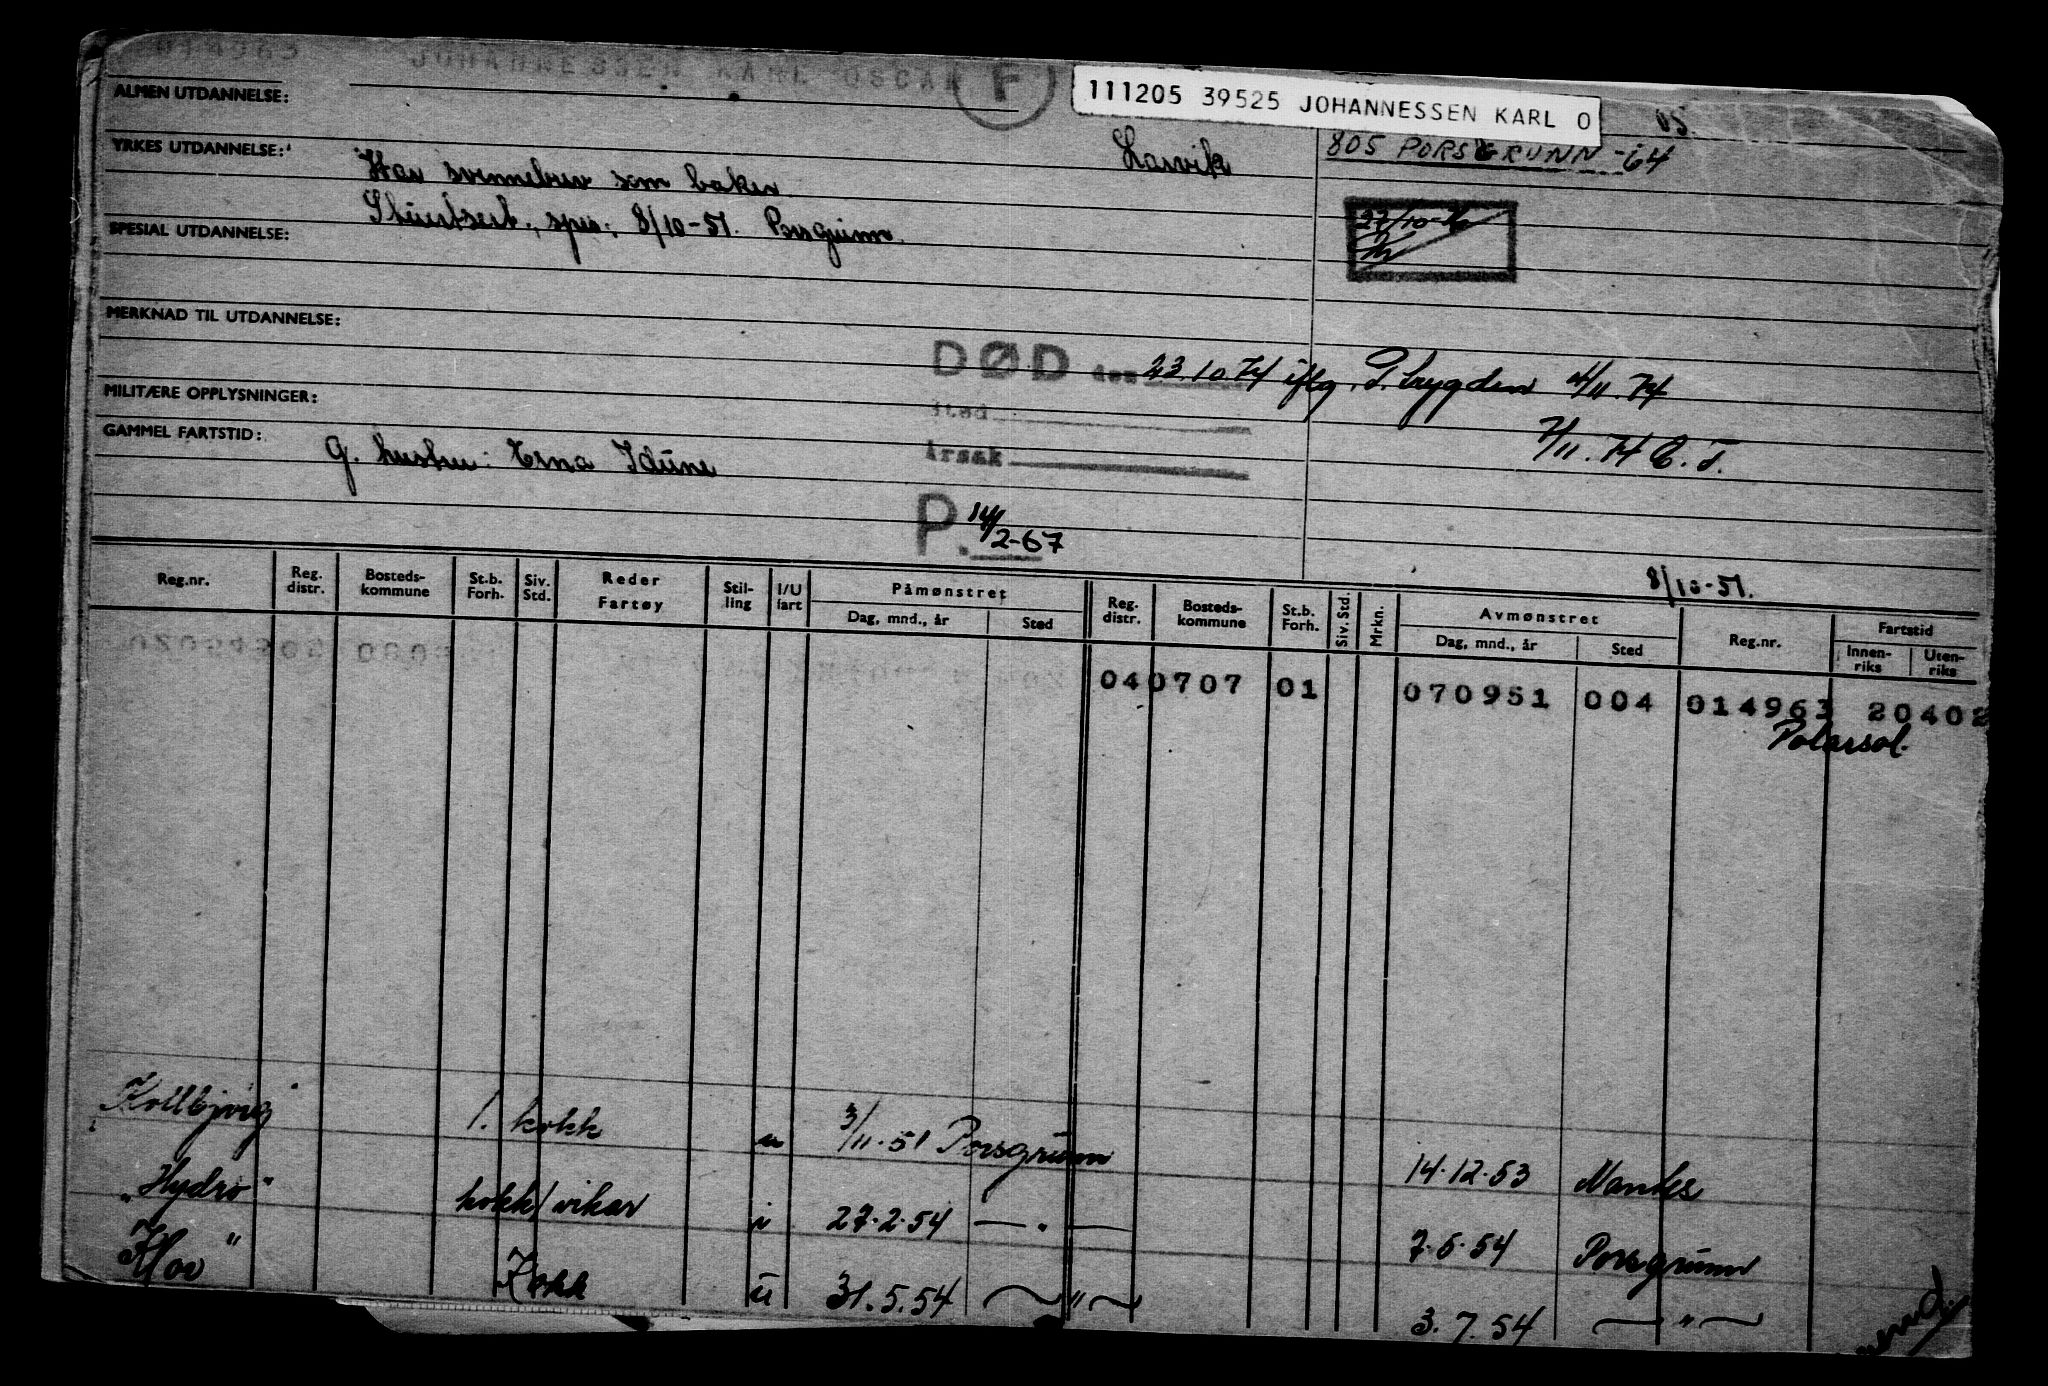 014963 JOHANNESSEN KARL OSCAR F
111205 39525 JOHANNESSEN KARL O
05.
ALMEN UTDANNELSE:
Larvik
805 PORSGRUNN -64
YRKES UTDANNELSE: Har svennebrev som baker
Stuertsert., spes: 8/10-51. Porsgrunn.
SPESIAL UTDANNELSE:
MERKNAD TIL UTDANNELSE:
DØD den 23.10.74 iflg. T. trygden 4/11.74
MILITÆRE OPPLYSNINGER:
Sted
7/11.74 E.T.
GAMMEL FARTSTID:
G. hustru: Erna Idune
Årsak
P. 14/2-67
8/10-51.
Reg.nr. Reg. distr. Bosteds-kommune St.b. Forh. Siv. Std. Reder Fartøy Stil-ling I/U fart Påmønstret Dag, mnd., år Sted Reg. distr. Bosteds-kommune St.b. Forh. Siv. Std. Mrkn. Avmønstret Dag, mnd., år Sted Reg.nr. Fartstid Innen-riks Uten-riks
040707 01 070951 004 014963 20402
Polarsol.
Kollbjørg 1. kokk u 3/11.51 Porsgrunn 14.12.53
"Hydro" kokk/vikar i 27.2.54 — " — 7.5.54 Porsgrunn
"Hav" Kokk u 31.5.54 — " — 3.7.54 — " —